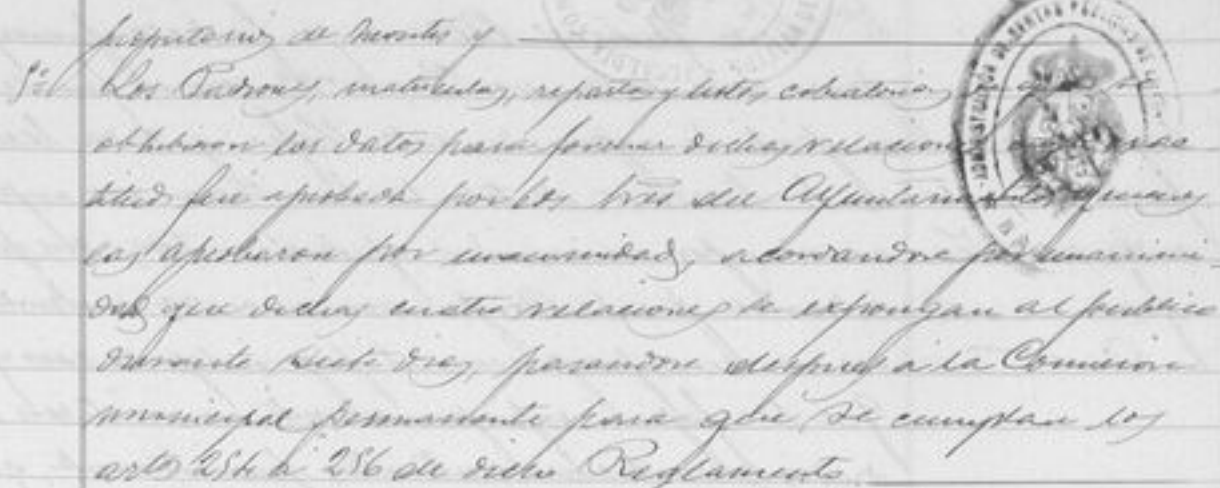 propietarios de montes y
5º Los Padrones, matriculas, repartos y listas cobratorias
obtuvieron los datos para formar dichas relaciones
fue aprobada por los Sres del Ayuntamiento quienes
las aprobaron por unanimidad, acordandose por unanimi-
dad que dichas cuatro relaciones se expongan al publico
durante siete dias, pasandose despues a la Comision
municipal permanente para que se cumplan los
artos 254 a 256 de dicho Reglamento.
ADMINISTRACIÓN DE RENTAS PUBLICAS DE